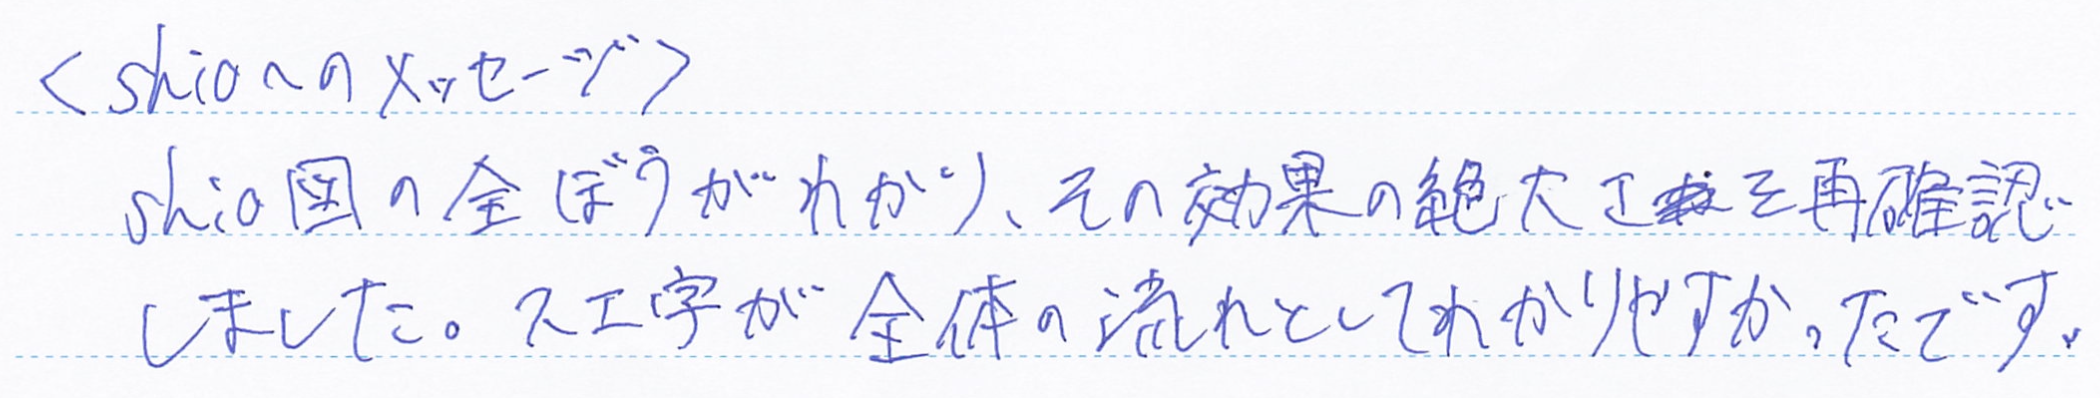 <shioへのメッセージ>
shio図の全ぼうがわかり、その効果の絶大さを再確認
しました。ス工字が全体の流れとしてわかりやすかったです。